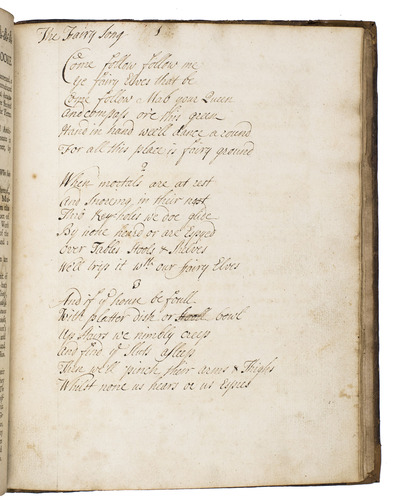 The Fairy Song
1
Come follow follow me
ye fairy Elves that be
Come follow Mab your Queen
And compass ore this green
Hand in hand we'll dance a round
For all this place is fairy ground
2
When mortals are at rest
And Snoreing in their nest
Thro Key-holes we doe glide
By none heard or are Espyed
Over Tables Stools & Shelves
We'll trip it wth our fairy Elves
3
And if ye house be foull
With platter dish or bowl
Up Stairs we nimbly creep
And find ye Sluts asleep
Then we'll pinch their arms & Thighs
Whilst none us hears or us Espies